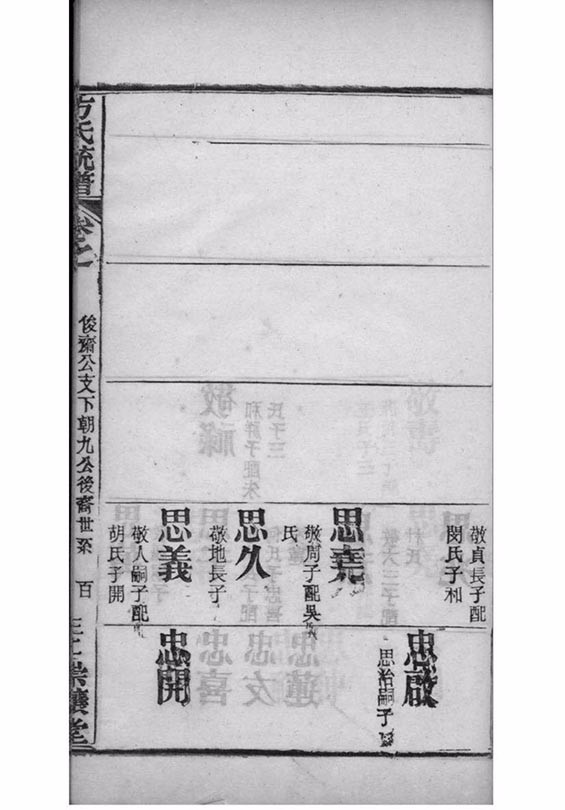 敬貞長子配
閔氏子和
思堯
敬周子配吳
氏
思久
敬地長子
思義
敬人嗣子配
胡氏子開
忠啟
思治嗣子
忠開
方氏統譜
卷之
俊齋公支下朝九公後裔世系
百
三十
崇讓堂